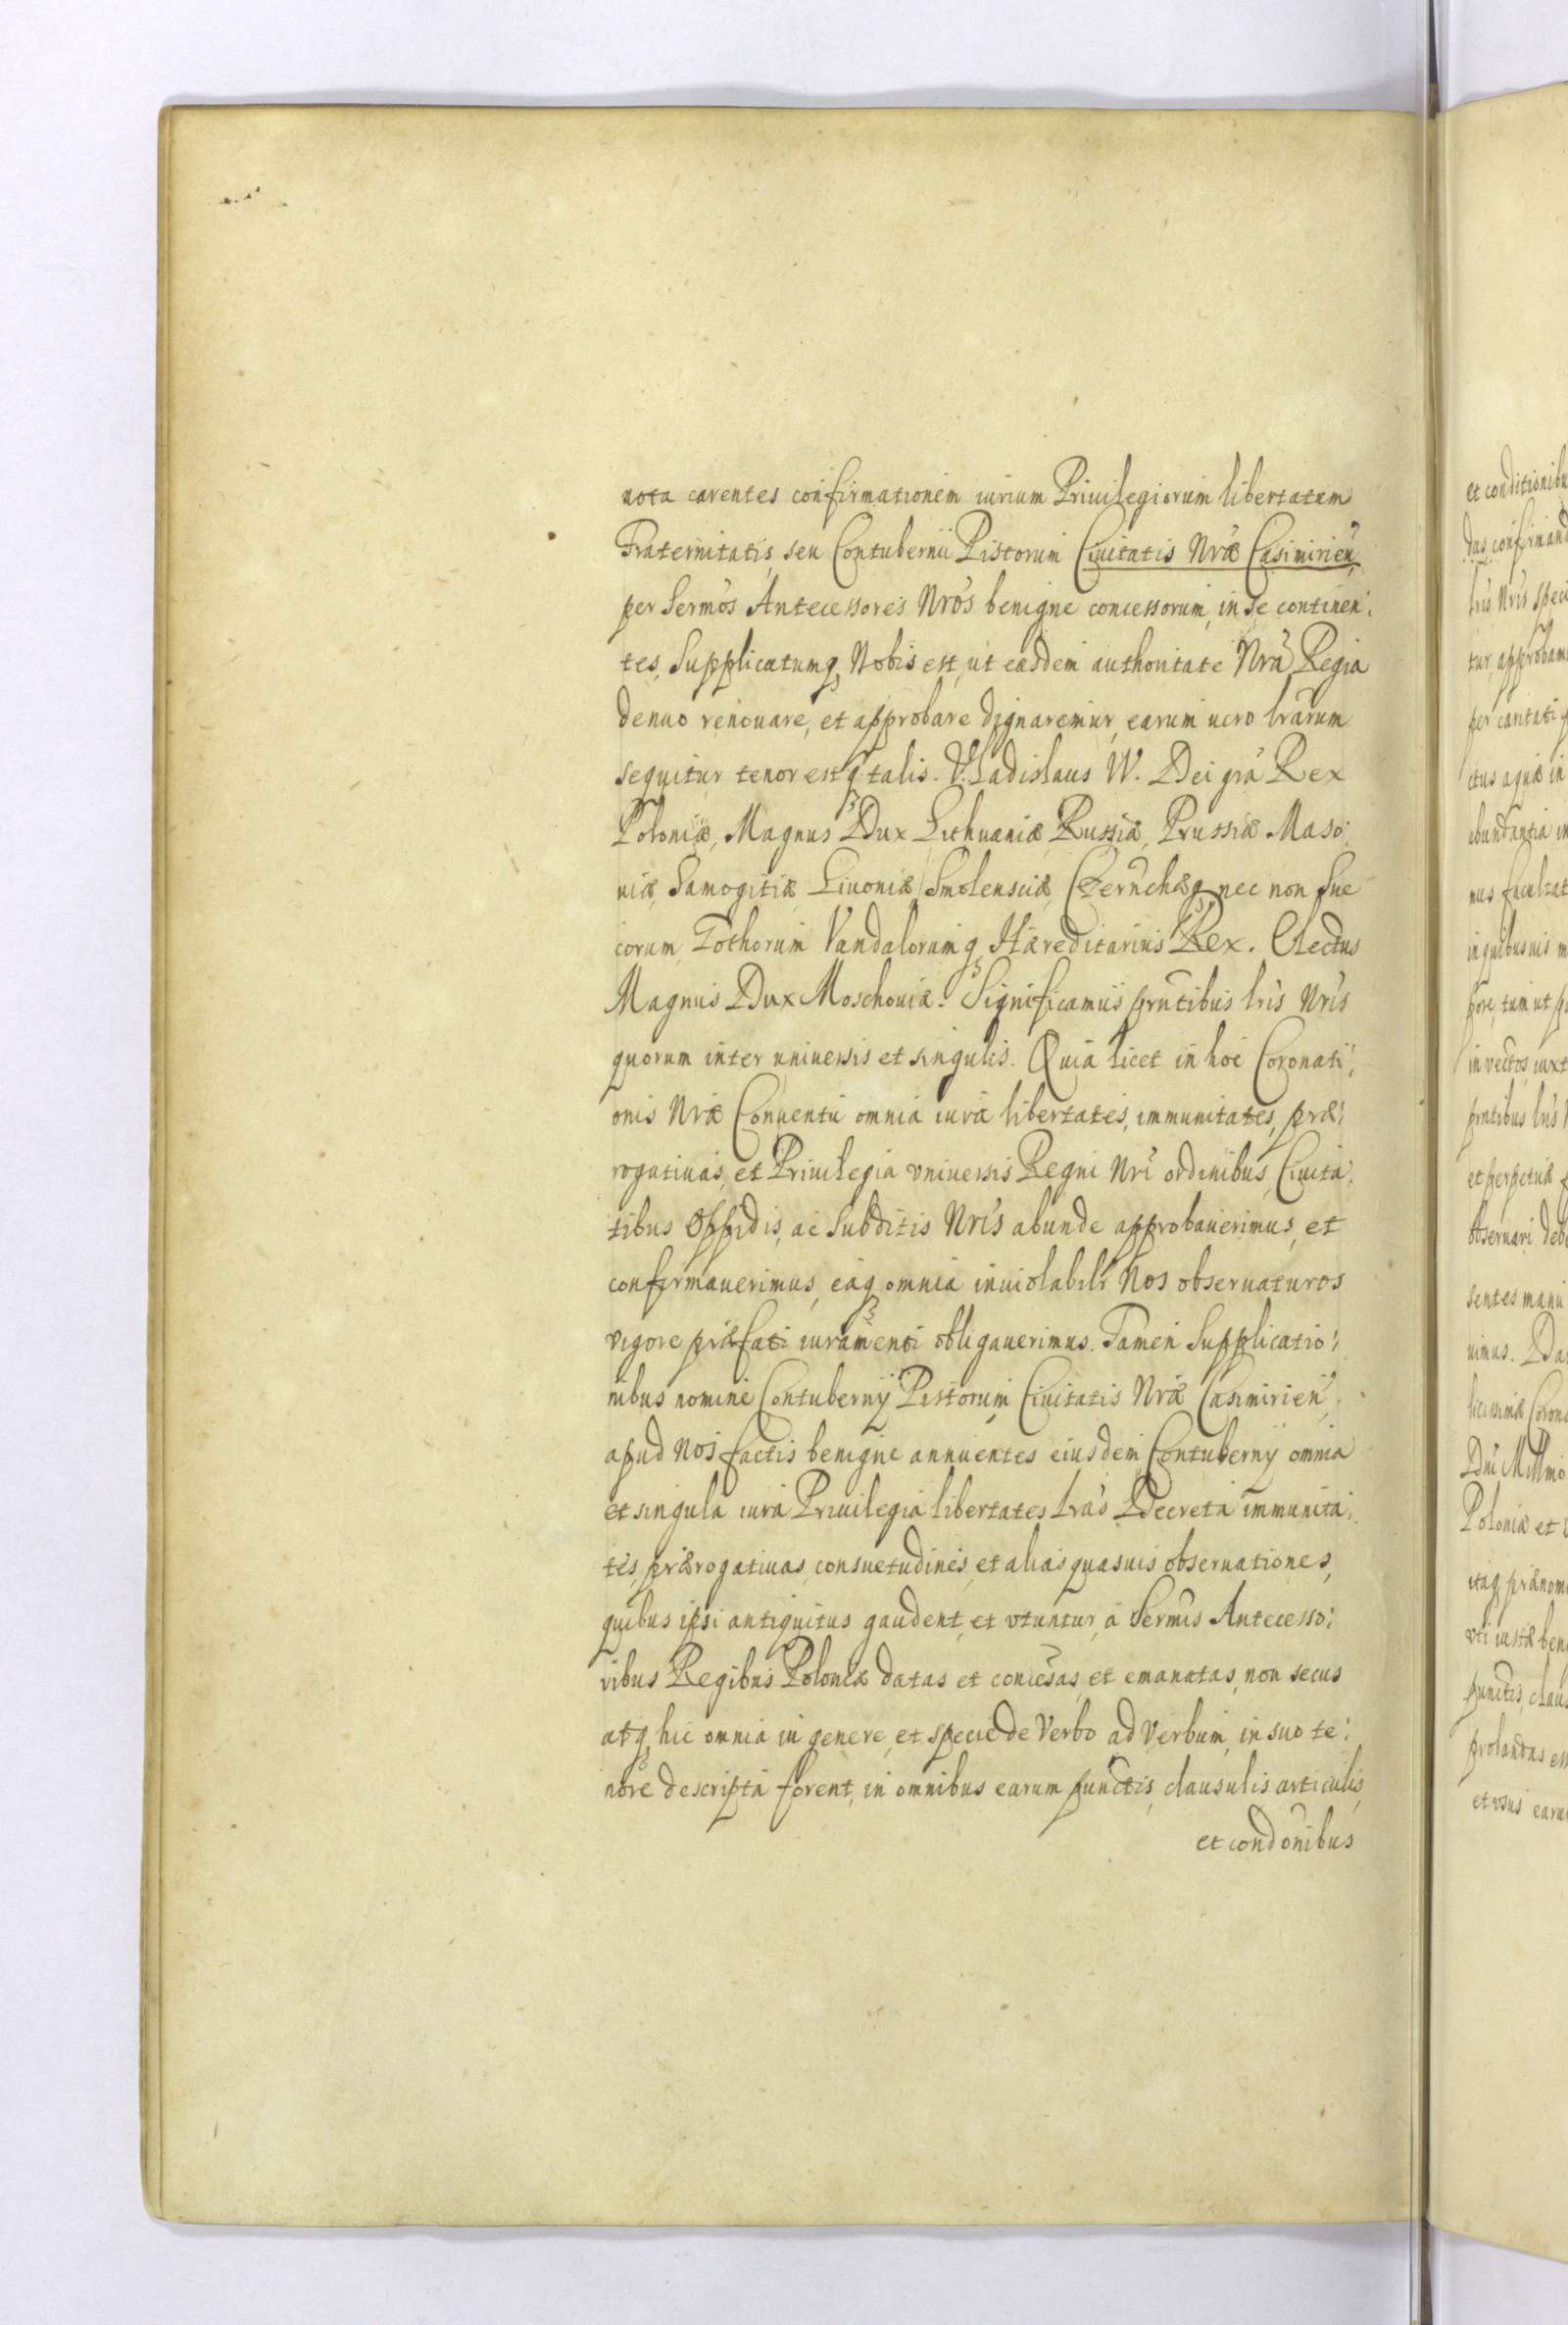 nota carentes confirmationem iurium Priuilegiorum libertatum
Fraternitatis, seu Contubernii Pistorum Ciuitatis Nræ Casimirien̄,
per Sermos Antecessores Nros benigne concessorum, in se continen:
tes, Supplicatumq, Nobis est, ut easdem authoritate Nrā Regia
denuo renouare, et approbare dignaremur, earum uero lrarum
sequitur tenor estq talis. Vladislaus IV. Dei grā Rex
Poloniæ, Magnus Dux Lithuaniæ Russiæ, Prussiæ Maso:
uiæ, Samogitiæ Liuoniæ, Smolensciæ, Czernchæq, nec non Sue
corum, Gothorum Vandalorumq, Hæreditarius Rex. Electus
Magnus Dux Moschouiæ. Significamus prntibus lris Nris
quorum inter uniuersis et singulis. Quia licet in hoc Coronati:
onis Nræ Conuentu omnia iura libertates, immunitates, præ:
rogatiuas, et Priuilegia vniuersis Regni Nri ordinibus, Ciuita:
tibus Oppidis, ac Subditis Nris abunde approbauerimus, et
confirmauerimus, eaq, omnia inuiolabilr Nos obseruaturos
vigore præfati iuramenti obligauerimus. Tamen Supplicatio:
nibus nomine Contubernij Pistorum Ciuitatis Nræ Casimirien̄,
apud Nos factis benigne annuentes eiusdem Contubernij omnia
et singula iura Priuilegia libertates lras Decreta immunita:
tes, prærogatiuas, consuetudines, et alias quasuis obseruationes,
quibus ipsi antiquitus gaudent, et vtuntur, a Sermis Antecesso:
ribus Regibus Poloniæ datas et concēsas, et emanatas, non secus
atq, hic omnia in genere, et specie de Verbo ad Verbum, in suo te:
nore descripta forent, in omnibus earum punctis, clausulis articulis,
et condonibus